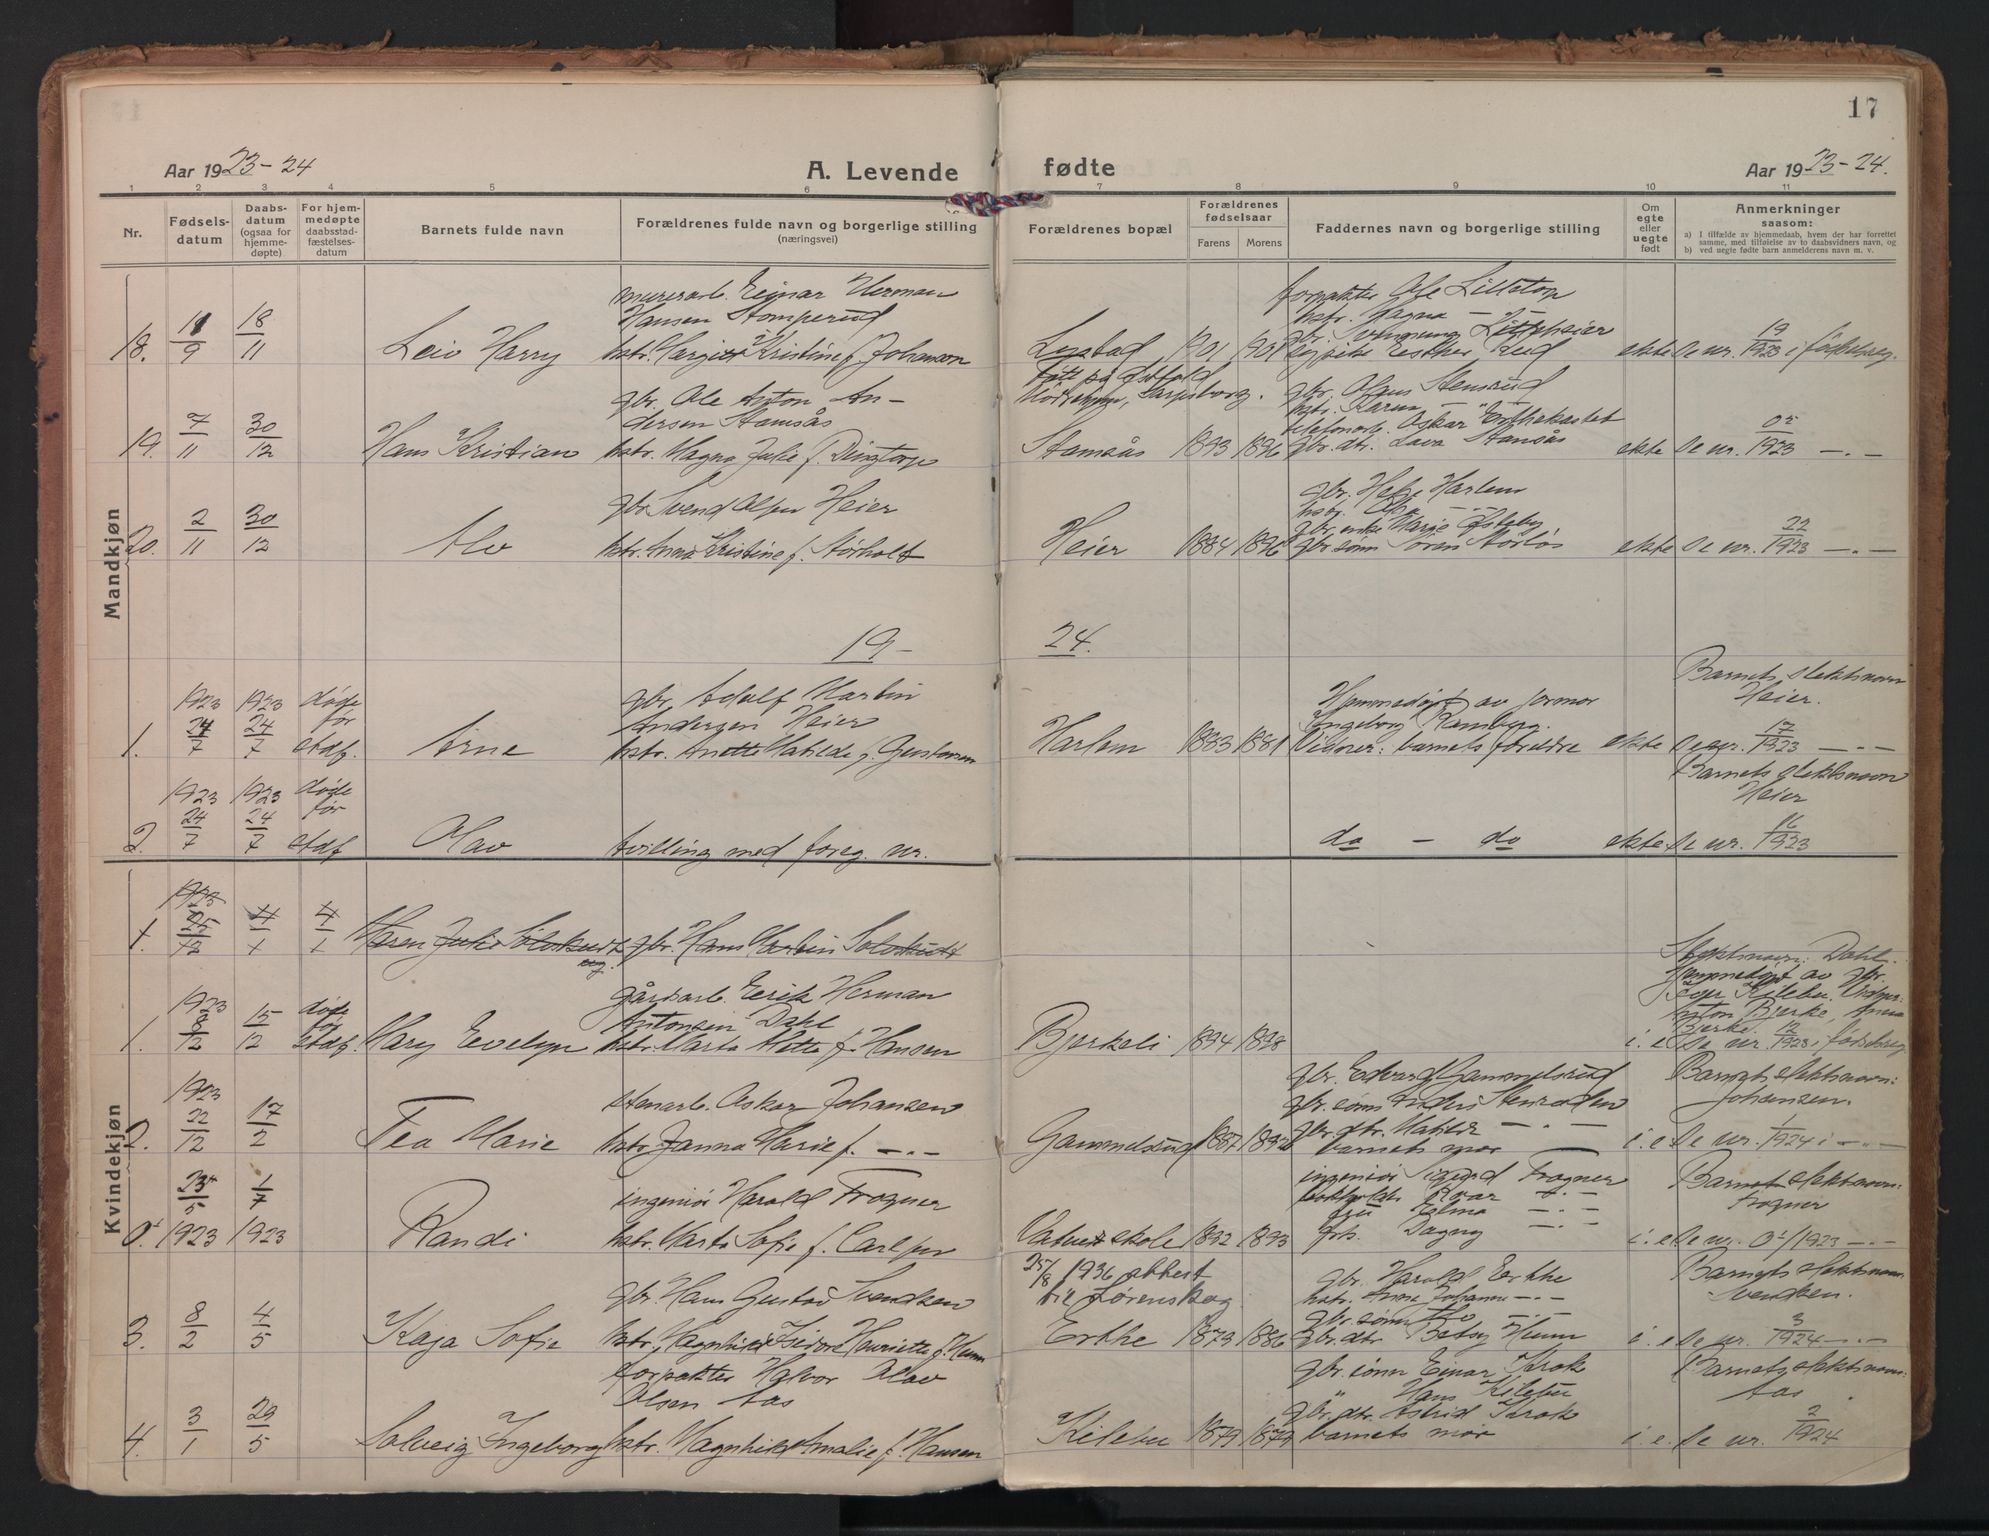 17
Aar 1923-24
A. Levende
fødte
Aar 1923-24.
1 2 3 4 5 6 7 8 9 10 11
Nr.
Fødsels-
datum
Daabs-
datum
(ogsaa for
hjemme-
døpte)
For hjem-
medøpte
daabsstad-
fæstelses-
datum
Barnets fulde navn
Forældrenes fulde navn og borgerlige stilling
(næringsvei)
Forældrenes bopæl
Forældrenes
fødselsaar
Farens Morens
Faddernes navn og borgerlige stilling
Om
egte
eller
uegte
født
Anmerkninger
saasom:
a) I tilfælde av hjemmedaab, hvem der har forrettet
samme, med tilføielse av to daabsvidners navn, og
b) ved uegte fødte barn anmelderens navn m. v.
Mandkjøn
murerarb. Einar Herman
Hansen Stomperud
18. 11/9 18/11 Leiv Harry hstr. Margit Kristine f. Johanson
forpakter Ole Lilletorp
hstr. Magna — " —
Lystad 1901 1901 Esther ekte Se nr. 19/1923 i fødselsreg.
gbr. Ole Anton An-
dersen Stamsås
19. 7/11 30/12 Hans Kristian hstr. Magna Julie f. Dingtorp
Sarpsborg.
gbr. Olaus Stensrud
hstr. Karen — " —
telefonarb. Oskar
Stamsås 1893 1896 gbr. dtr. Lava Stamsås ekte Se nr. 02/1923 — " —
gbr Svend Olsen Heier
20. 2/11 30/12 Alv hstr. Anna Kristine f. Størholt
gbr. Harlem
gbr. enke Marie Østeby
Heier 1884 1896 gbr sønn Søren ekte Se nr. 22/1923 — " —
19- 24.
1923 1923 døde
før
gbr. Adolf Martin
Andersen Heier
1. 24/7 24/7 stdf. Arne hstr. Anette Matilde f. Gustavsen
Hjemmedøpt av jormor
Ingeborg Ramberg.
Harlem 1883 1881 Vidner: barnets foreldre ekte Se nr. 17/1923 — " —
Barnets slektsnavn
Heier.
1923 1923 døde
før
2. 24/7 24/7 stdf Olav tvilling med foreg. nr.
do — do ekte Se nr. 16/1923
Barnets slektsnavn
Heier
Kvindekjøn
1923
1. 25/12 4/1 4/1 Karen Julie gbr. Hans Martin
1923 døde
før
gårdsarb. Erik Herman
Antonsen Dahl
1. 8/12 15/12 stdf. Mary Evelyn hstr. Marta Mette f. Hansen
Bjerkeli 1894 1898 i. e.
Slektsnavn: Dahl.
Hjemmedøpt av gbr.
Kilebu. Vidner:
Anton Bjerke, Anna
Bjerke. Se nr. 12/1923 i fødselsreg.
1923
stenarb. Oskar Johansen
2. 22/12 17/2 Tea Marie hstr. Janna Marie f. — " —
Gammelsrud 1887 1892
gbr. Edvard Gammelsrud
gbr. sønn Anders Stenroden
gbr. dtr. Matilde — " —
barnets mor
i. e. Se nr. 1/1924 i — " —
Barnets slektsnavn:
Johansen.
0². 23/5 1923 1/7 1923 Randi
ingeniør Harald Frogner
hstr. Marta Sofie f. Carlsen
skole 1892 1893
ingeniør Sigurd Frogner
Roar — " —
fru Elma — " —
frk. Dagny — " —
i. e. Se nr. 0²/1923 — " —
Barnets slektsnavn:
Frogner
25/8 1936 attest
til Lørenskog
gbr. Hans Gustav Svendsen
3. 8/2 4/5 Kaja Sofie hstr. Magnhild Isidore Henriette f. Heum
Erthe 1879 1886
gbr. Harald Erthe
hstr. Anna Johanne — " —
gbr sønn — " —
gbr. dtr. Betsy Heum
i. e. Se nr. 3/1924 — " —
Barnets slektsnavn:
Svendsen.
forpakter Halvor Olav
Olsen Aas
4. 3/1 29/5 Solveig Ingeborg hstr. Magnhild Amalie f. Hansen
Kilebu 1879 1879
gbr sønn Einar Krok
" Hans Kilebu
gbr. dtr. Astrid Krok
barnets mor
i. e. Se nr. 2/1924
Barnets slektsnavn:
Aas.